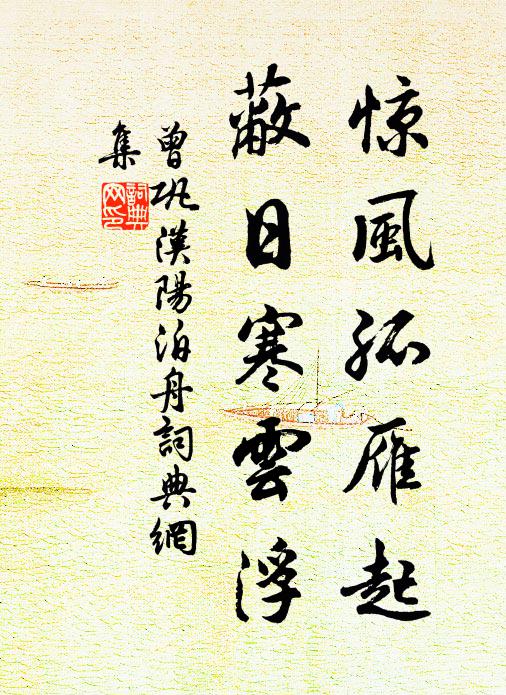 惊風孤雁起
蔽日寒雲浮
曾巩漢陽泊舟詞典網
集
詞典
网印